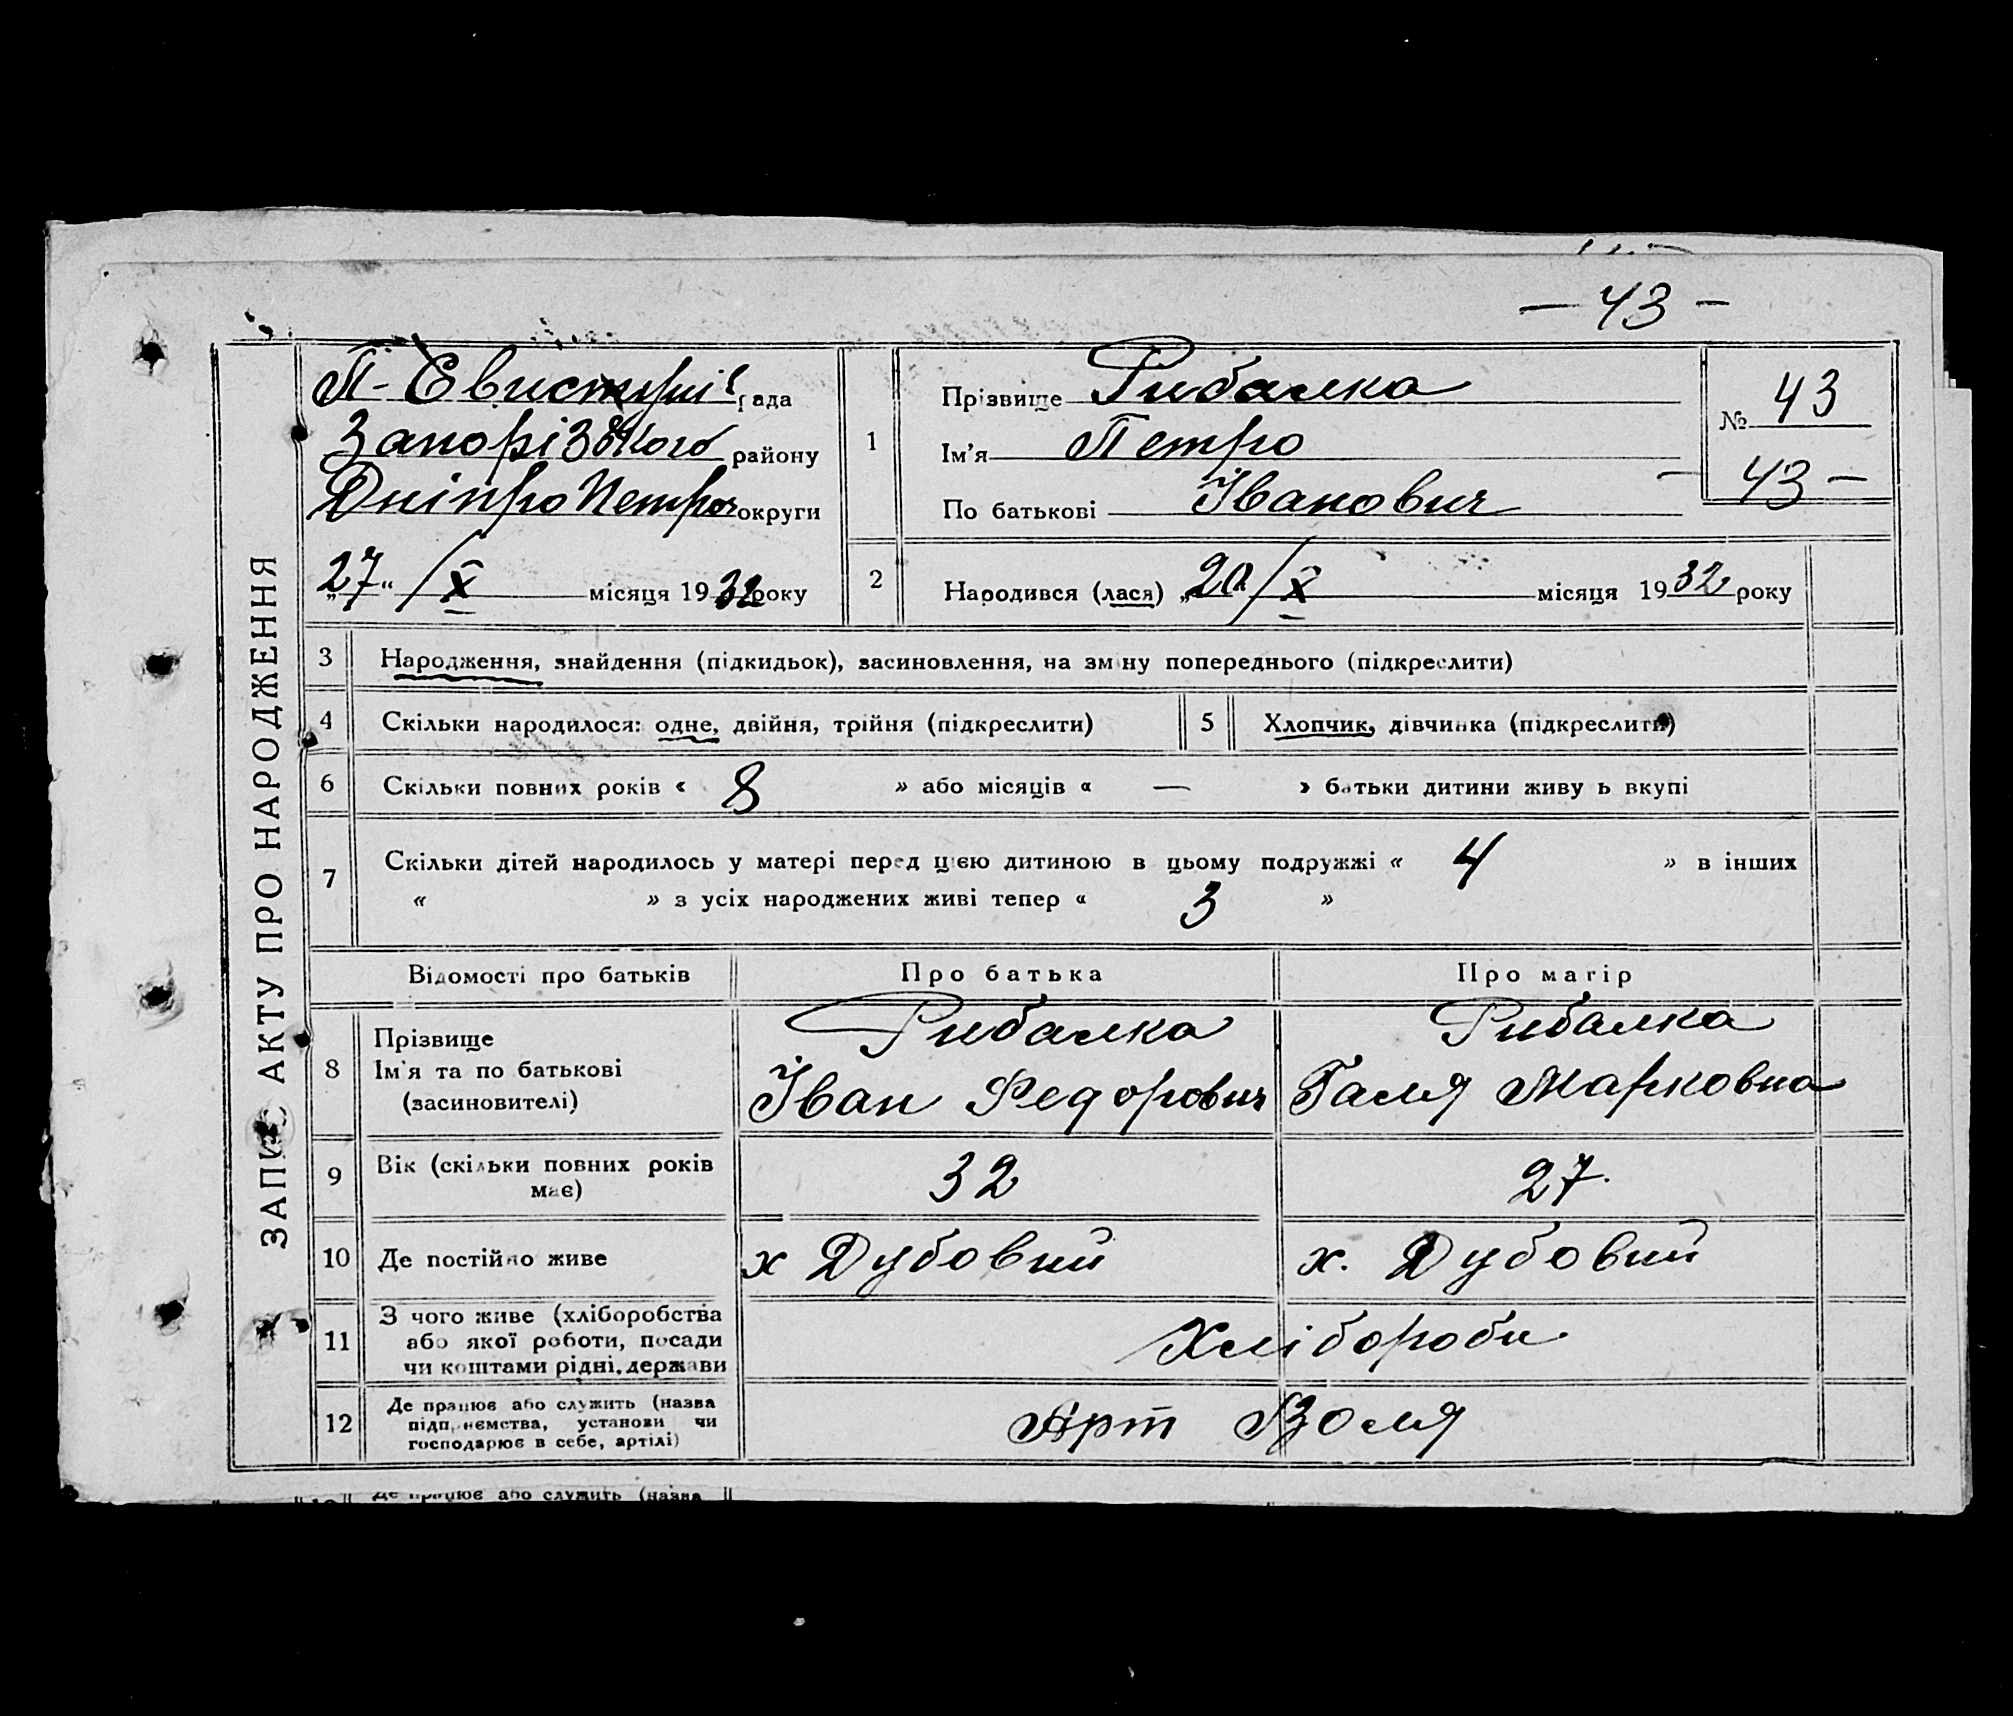 — 43 —
ЗАПИС АКТУ ПРО НАРОДЖЕННЯ
рада
Запорізького району
округи
„27“ / X місяця 1932 року
1
Прізвище Рибалка
Ім'я Петро
По батькові Іванович
№ 43
— 43 —
2
Народився (лася) „20 / X місяця 1932 року
3 Народження, знайдення (підкидьок), засиновлення, на зміну попереднього (підкреслити)
4 Скільки народилося: одне, двійня, трійня (підкреслити) 5 Хлопчик, дівчинка (підкреслити)
6 Скільки повних років « 8 » або місяців « — » батьки дитини живуть вкупі
7 Скільки дітей народилось у матері перед цією дитиною в цьому подружжі « 4 » в інших
« » з усіх народжених живі тепер « 3 »
Відомості про батьків Про батька Про матір
8 Прізвище
Ім'я та по батькові
(засиновителі)
Рибалка
Іван Федорович
Рибалка
Галя Марковна
9 Вік (скільки повних років
має)
32 27.
10 Де постійно живе х Дубовий х. Дубовий
11 З чого живе (хліборобства
або якої роботи, посади
чи коштами рідні, держави
Хлібороби
12 Де працює або служить (назва
підприємства, установи чи
господарює в себе, артілі)
Арт Воля
Де працює або служить (назва